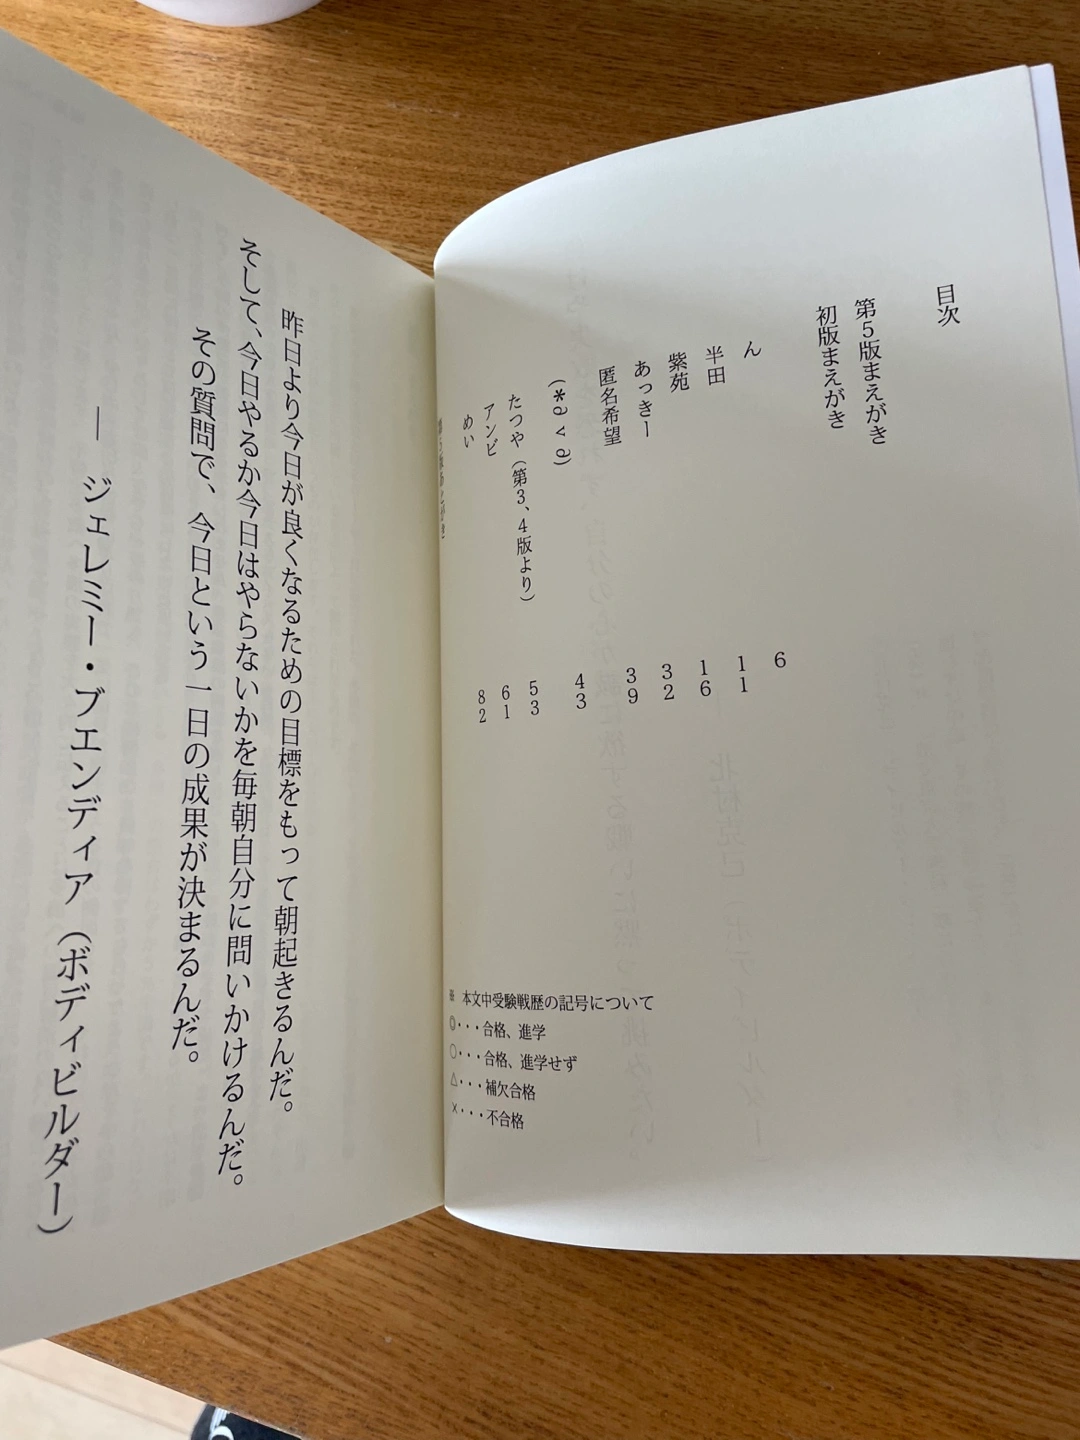 目次
第5版まえがき
初版まえがき
ん 6
半田 11
紫苑 16
あっきー 32
匿名希望 39
(*∂v∂) 43
たつや（第3、4版より） 53
アンビ 61
めい 82
第5版あとがき
※ 本文中受験戦歴の記号について
◎・・・合格、進学
○・・・合格、進学せず
△・・・補欠合格
×・・・不合格
昨日より今日が良くなるための目標をもって朝起きるんだ。
そして、今日やるか今日はやらないかを毎朝自分に問いかけるんだ。
その質問で、今日という一日の成果が決まるんだ。
― ジェレミー・ブエンディア（ボディビルダー）